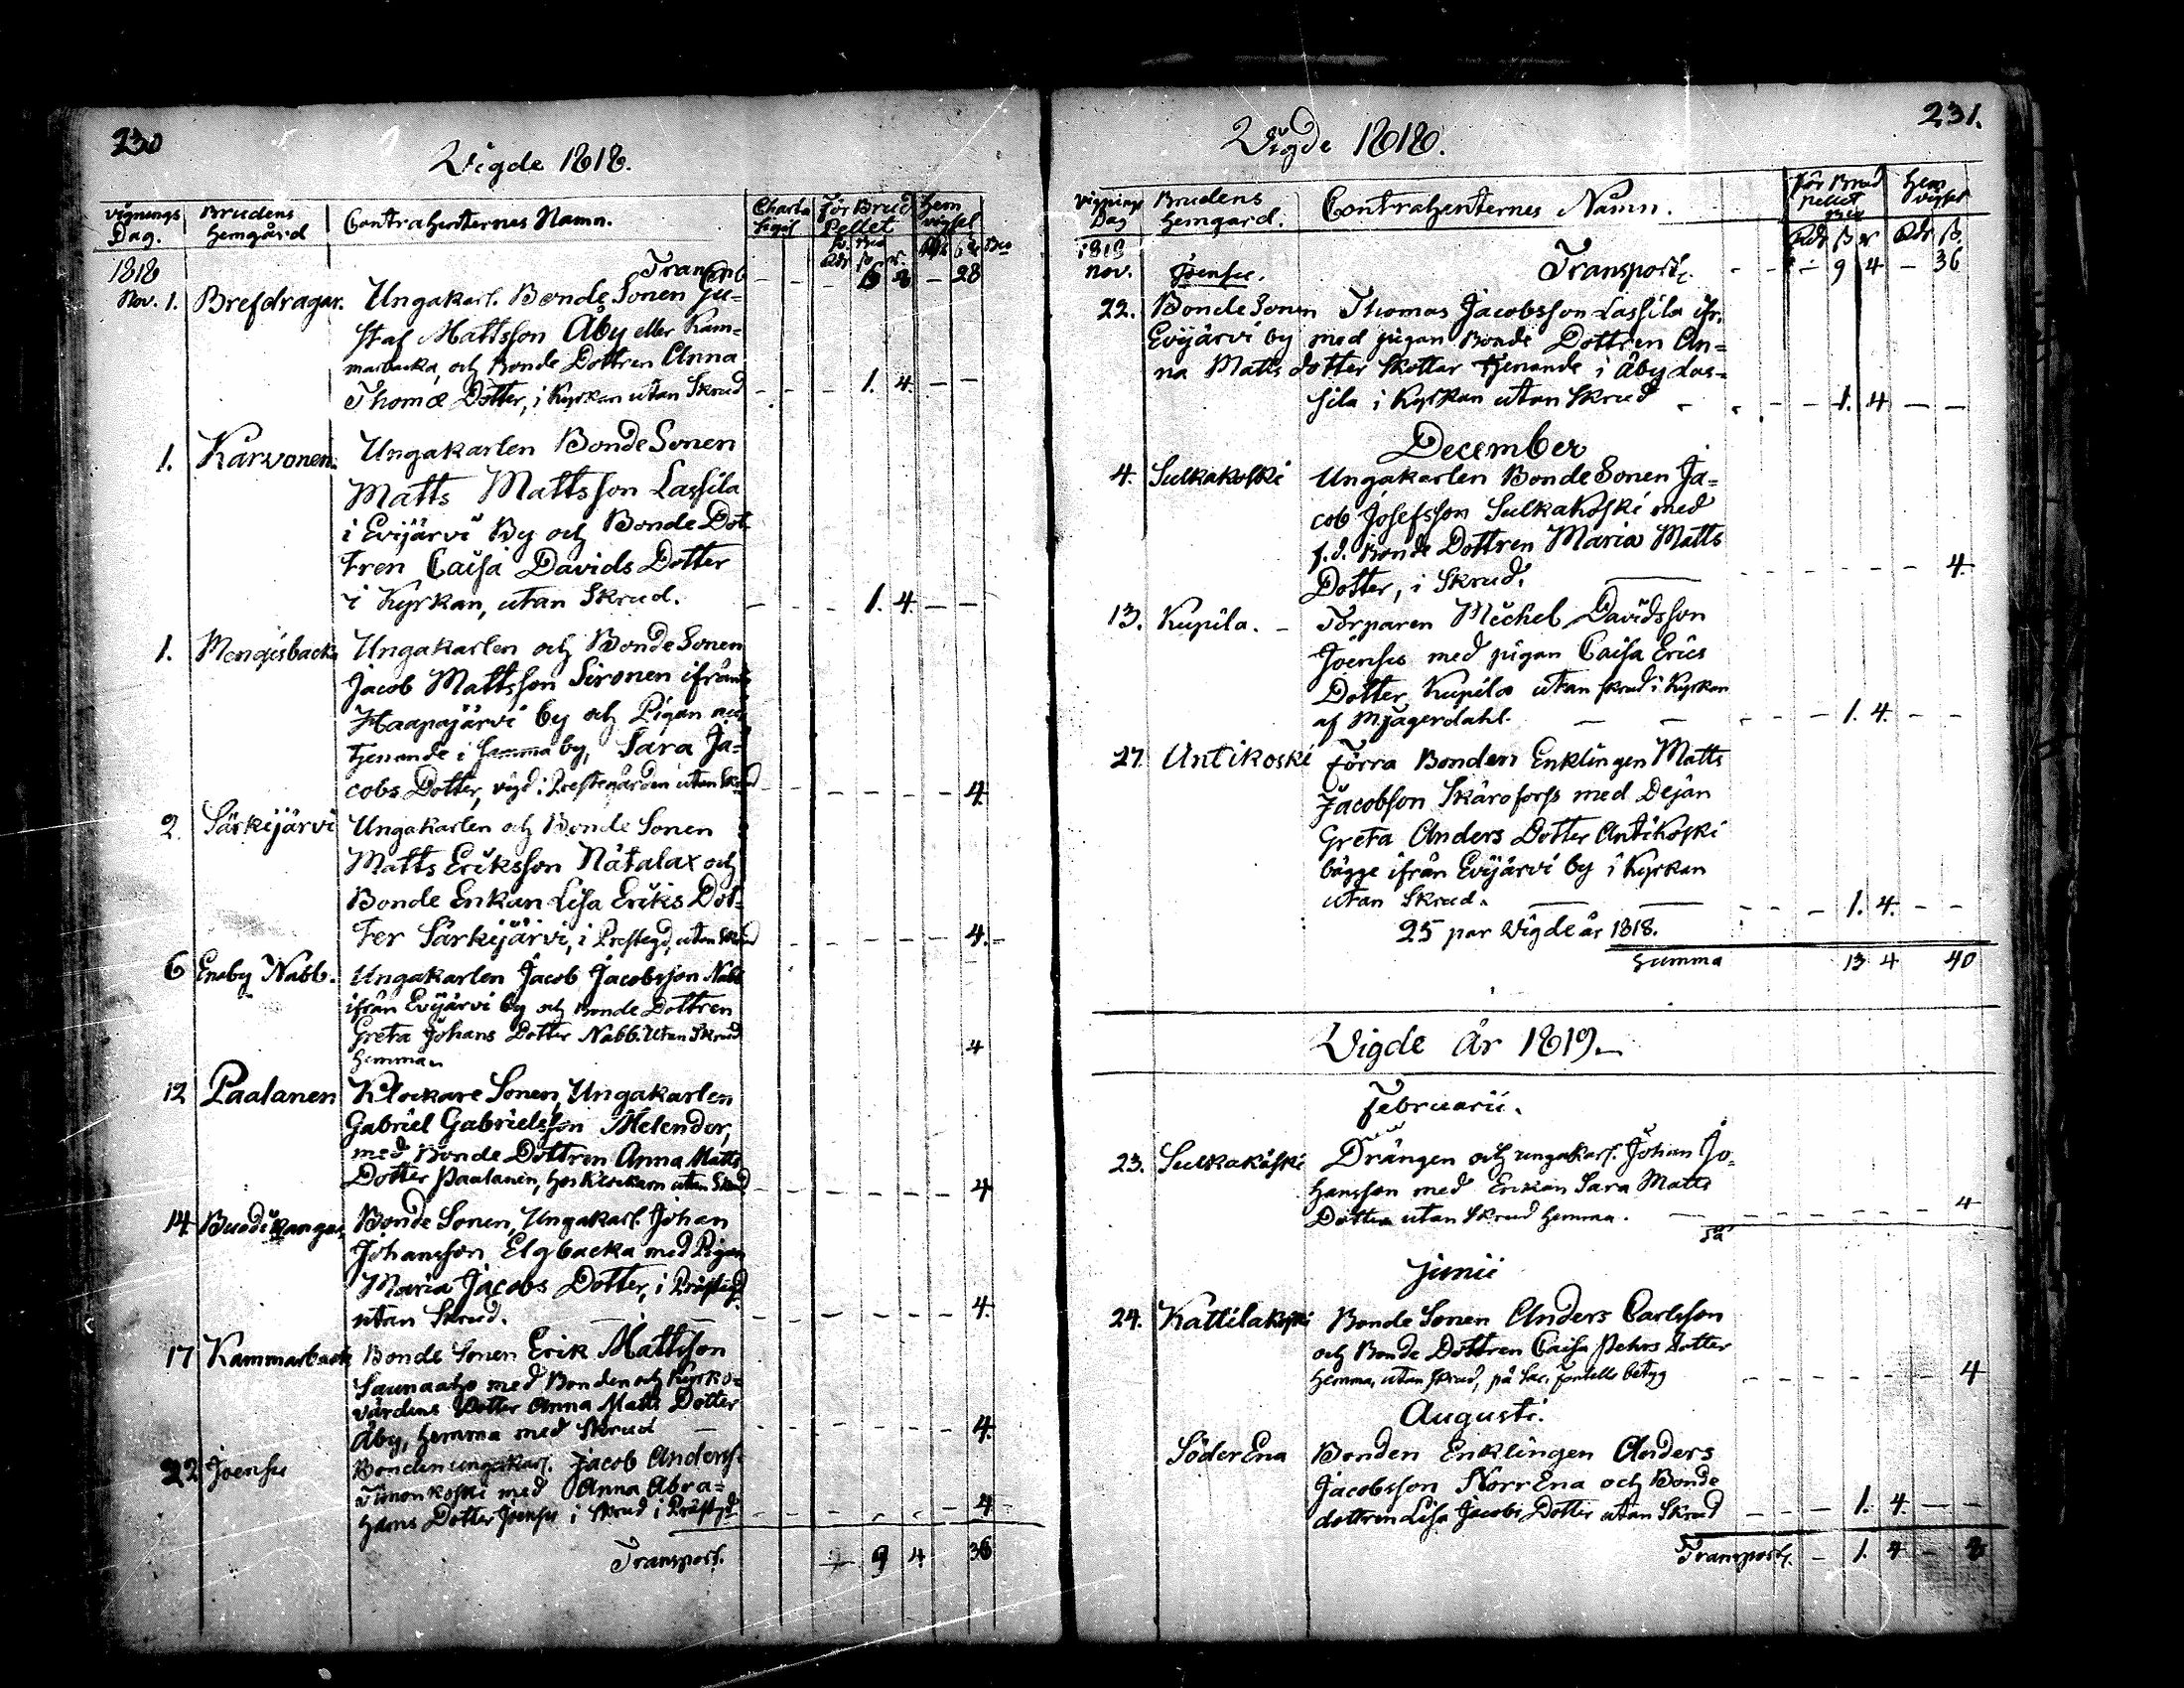 230
Vigde 1818.
Vignings Dag. Brudens Hemgård Contrahenternes Namn. Charta Sigil För Brud Pellet Hem vigsel
1818 Transport - - - - 28
Nov. 1. Brefdragar. Ungakarl. Bonde Sonen Gu=
staf Mattsson Åby eller Kam=
marbacka, och Bonde Dottren Anna
Thomæ Dotter, i Kyrkan utan Skrud - - - 1. 4. - -
1. Karvonen. Ungakarlen Bonde Sonen
Matts Mattsson Lassila
i Evijärvi By och Bonde Dot
tren Caisa Davids Dotter
i Kyrkan, utan Skrud. - - - 1. 4. - -
1. Mengisbacka Ungakarlen och Bonde Sonen
Jacob Mattsson Sironen ifrån
Haapajärvi by och Pigan nu
tjenande i samma by, Sara Ja=
cobs Dotter, vigd i Prestegården utan Skrud - - - - - - 4.
2. Särkijärvi Ungakarlen och Bonde Sonen
Matts Eriksson Nätalax och
Bonde Enkan Lisa Eriks Dot=
ter Särkijärvi, i Prestegd, utan Skrud - - - - - - 4. -
6 Enaby Nabb. Ungakarlen Jacob Jacobsson Nabb
ifrån Evijärvi by och Bonde Dottren
Greta Johans Dotter Nabb. Utan Skrud
hemma 4
12 Paalanen Klockare Sonen, Ungakarlen
Gabriel Gabrielsson Melender,
med Bonde Dottren Anna Matts
Dotter Paalanen, hos Klockarn utan Skrud - - - - - - 4
14 Buodikangas Bonde Sonen, Ungakarl. Johan
Johansson Elgbacka med Pigan
Maria Jacobs Dotter, i Prästgd.
utan Skrud. - - - - - - 4.
17 Kammarbacka Bonde Sonen Erik Mattsson
Saunaaho med Bonden och Kyrko=
värdens Dotter Anna Matts Dotter
Åby, hemma med Skrud - - - - - - 4.
22 Joensu Bonden ungakarl. Jacob Anderss.
Timonkoski med Anna Abra=
hams Dotter Joensu i Skrud i Prästgd - - - - - - 4
Transport. 9 4 36
231.
Vigde 1818.
Vignings Dag Brudens Hemgård. Contrahenternes Namn. För Brud pellet Hem vigsel
Rdr ß r Rdr ß.
1818
Nov. Joensu. Transport. - - - 9 4 - 36
22. Bonde Sonen Thomas Jacobsson Lassila ifr.
Evijärvi by med pigan Bonde Dottren An=
na Matts dotter Skottar tjenande i Åby Las=
sila i Kyrkan utan Skrud - - - - 1. 4 - -
December
4. Sulkakoski Ungakarlen Bonde Sonen Ja=
cob Josefsson Sulkakoski med
f.d. Bonde Dottren Maria Matts
Dotter, i Skrud. - - - - - - 4.
13. Kupila. - Torparen Michel Davidsson
Joensu med pigan Caisa Erics
Dotter Kupila utan Skrud i Kyrkan
af M. Jagerdahl. - - - - - 1. 4. - -
27. Antikoski Förra Bonden Enklingen Matts
Jacobson Skäroforss med Dejan
Greta Anders Dotter Antikoski
bägge ifrån Evijärvi by i Kyrkan
utan Skrud. - - - - - 1. 4. - -
25 par Vigde år 1818.
Summa 13 4 40
Vigde År 1819.
Februarii.
23. Sulkakoski Drängen och ungakarl. Johan Jo=
hansson med Enkan Sara Matts
Dotter utan Skrud hemma. - - - - - - - 4
Junii
24. Kattilakoski Bonde Sonen Anders Carlsson
och Bonde Dottren Caisa Pehrs Dotter
hemma, utan Skrud, på Sac. Fontells betyg - - - - - - 4
Augusti.
SöderEna Bonden Enklingen Anders
Jacobsson NorrEna och Bonde
dottren Lisa Jacobs Dotter utan Skrud - - - 1. 4. - -
Transport. - 1. 4 - 8